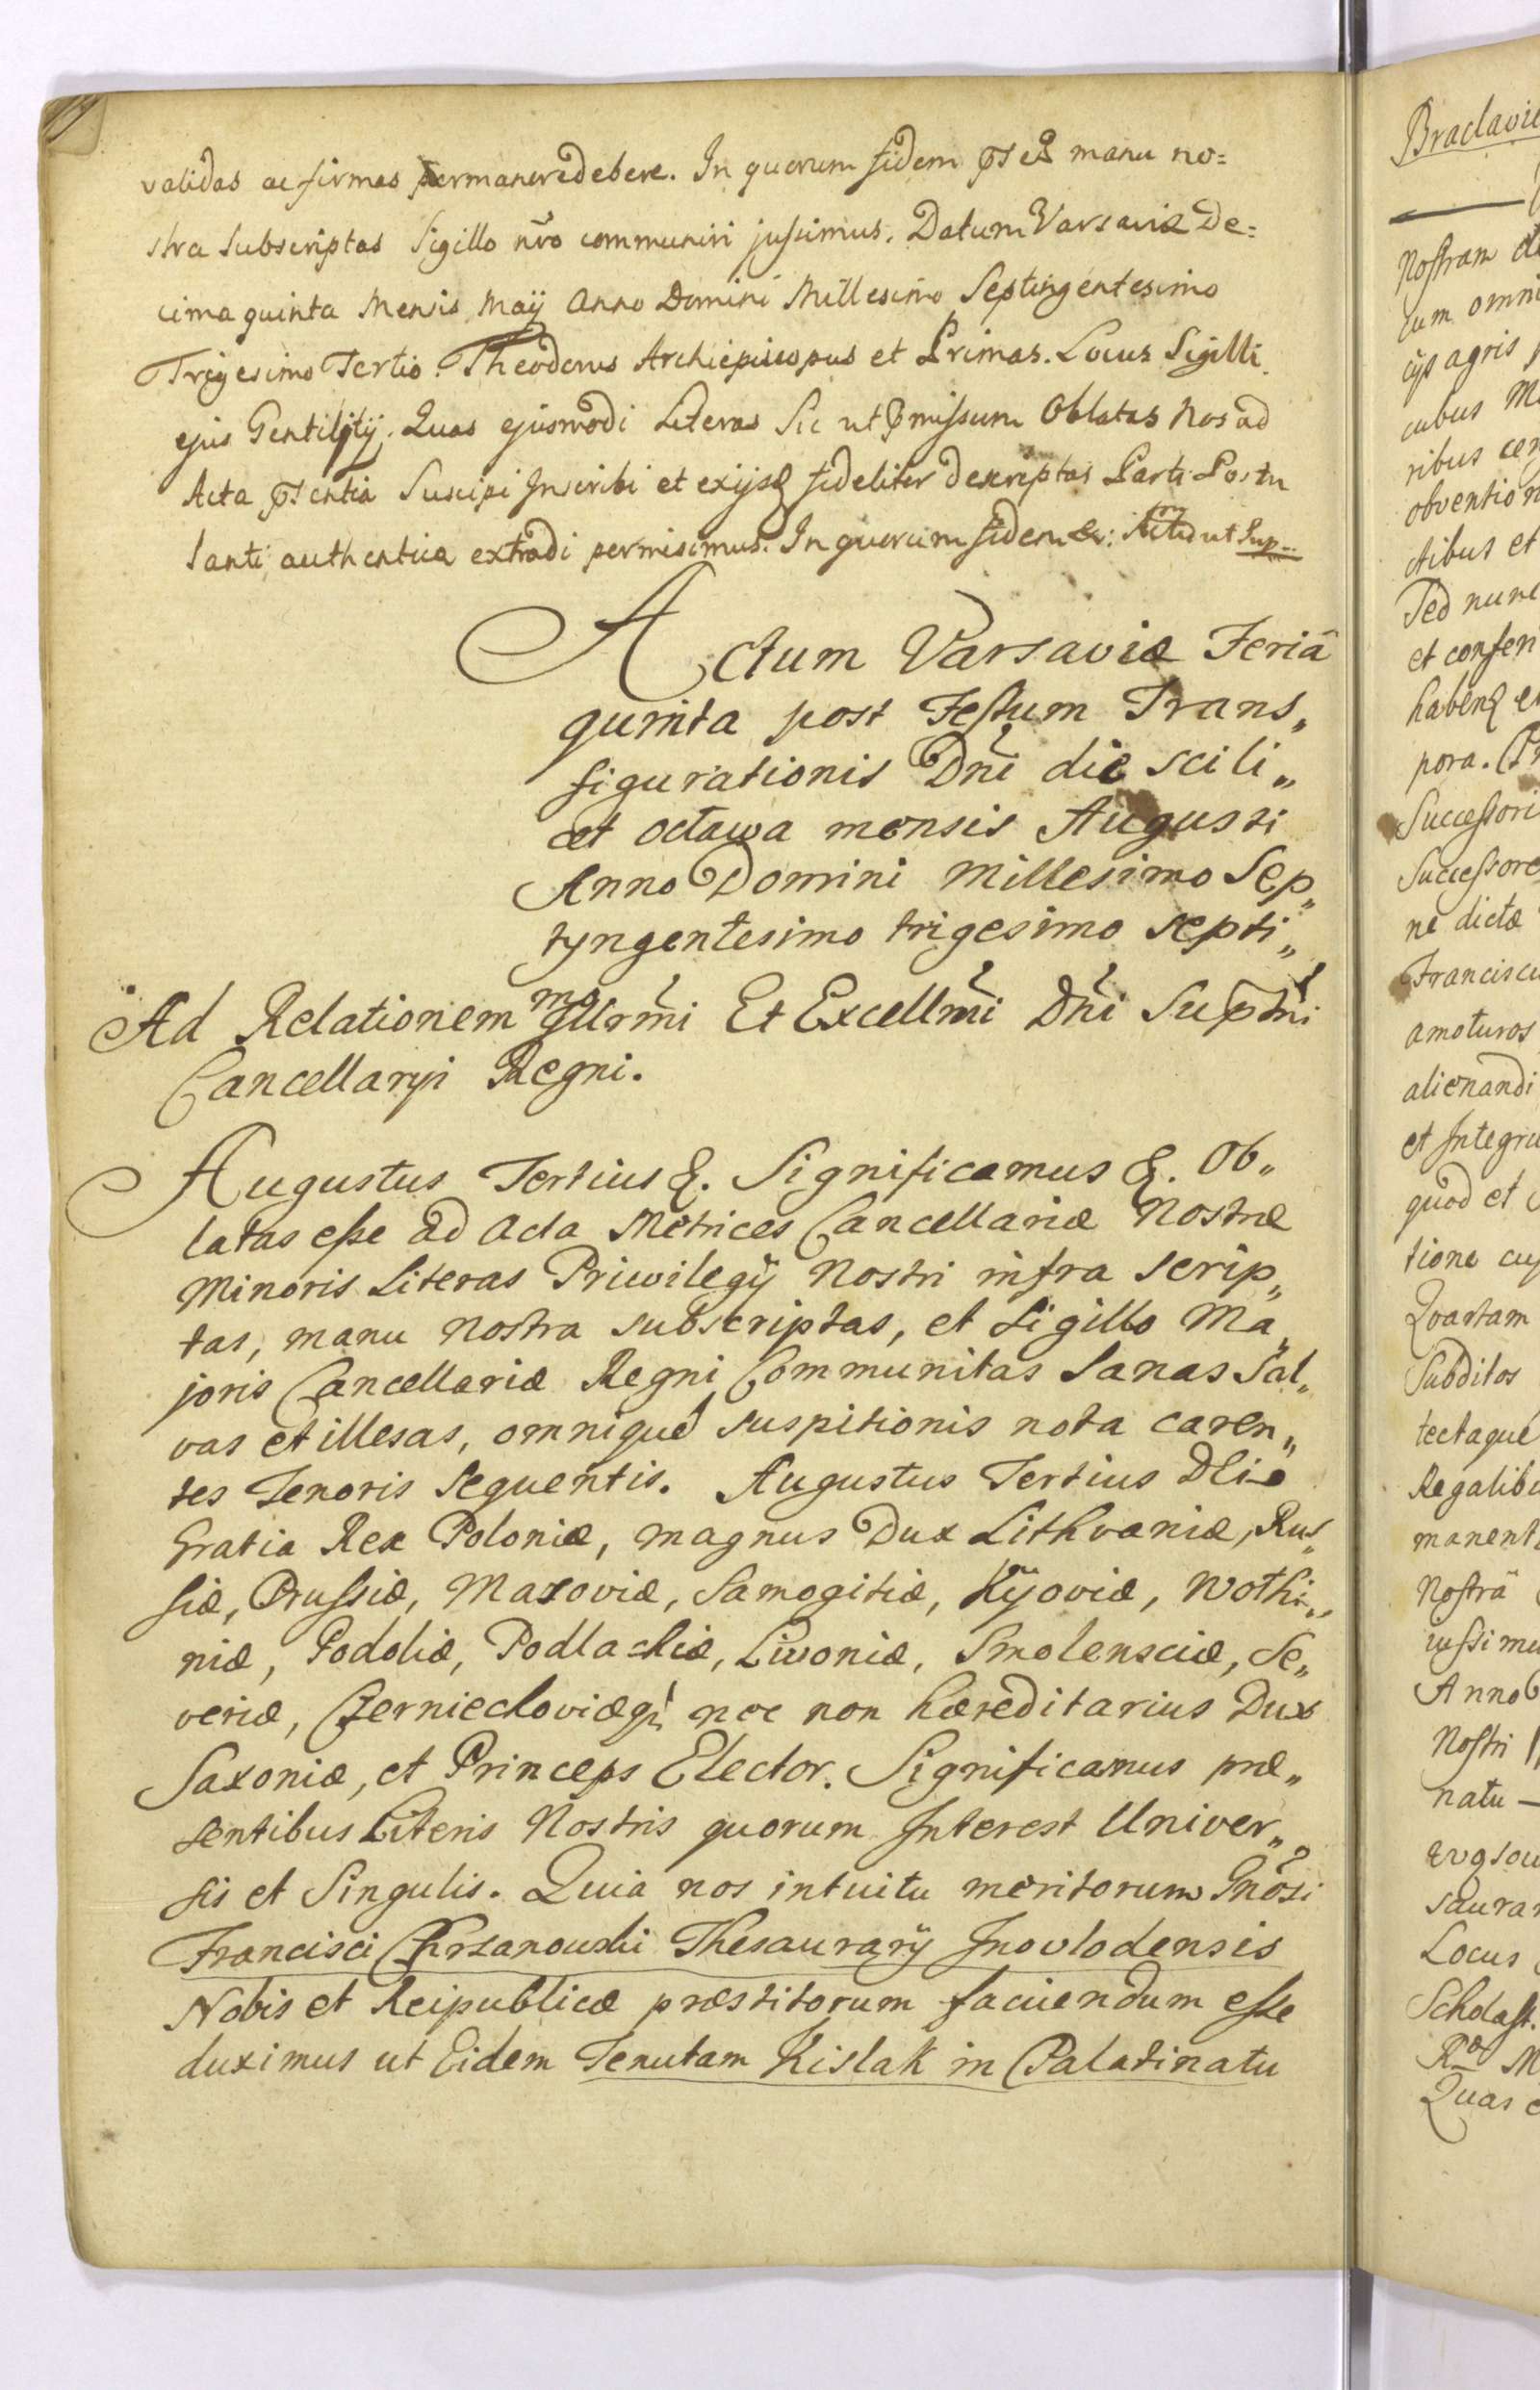 validas ac firmas permanere debere. In quorum fidem manu no=
stra subscriptas Sigillo nro communiri jussimus. Datum Varsaviæ De=
cima quinta Mensis Maÿ Anno Domini Millesimo Septingentesimo
Trigesimo Tertio. Theodorus Archiepiscopus et Primas. Locus Sigilli
ejus Gentilitÿ. Quas ejusmodi Literas Sic ut missum Oblatas Nos ad
Acta Suscipi Inscribi et fideliter descriptas Parti Postu
lanti authentica extradi permisimus. In quorum fidem &: Actum ut Sup.
Actum Varsaviæ Feriâ
quinta post Festum Trans„
figurationis Dni die scili„
cet octawa mensis Augusti
Anno Domini Millesimo Sep„
tyngentesimo trigesimo septi„
mo
Ad Relationem Illrmi Et Excellmi Dni Supmi
Cancellaryi Regni.
Augustus Tertius &. Significamus &. Ob„
latas esse ad Acta Metrices Cancellariæ Nostræ
Minoris Literas Priwilegÿ Nostri infra scrip„
tas, manu Nostra subscriptas, et Sigillo Ma„
joris Cancellariæ Regni Communitas Sanas Sal„
vas et illesas, omniquè suspitionis nota caren„
tes Tenoris Sequentis. Augustus Tertius
Gratia Rex Poloniæ, magnus Dux Lithvaniæ, Rus„
siæ, Prussiæ, Mazoviæ, Samogitiæ, Kÿoviæ, Wolhi„
niæ, Podoliæ, Podlachiæ, Livoniæ, Smolensciæ, Se„
veriæ, Czerniechoviæq nec non hæreditarius Dux
Saxoniæ, et Princeps Elector. Significamus præ„
sentibus Literis Nostris quorum Interest Univer„
sis et Singulis. Quia nos intuitu meritorum Gnosi
Francisci Chrzanowski Thesaurarÿ Inovlodensis
Nobis et Reipublicæ præstitorum faciendum esse
duximus ut Eidem Tenutam Kislak in Palatinatu
Nostram
cum omni
agris
cubus
ribus
obvention
ctibus et
Sed nunc
et consen
pora.
Successori
Successore
ne dictæ
Franciscu
amoturos
alienandi
et Integru
quod et
tione
Quartam
Subditos
tectaque
Regalibu
manent
Nostrâ
iussimu
Anno
Nostri
natu —
Locus
Scholast.
Quas